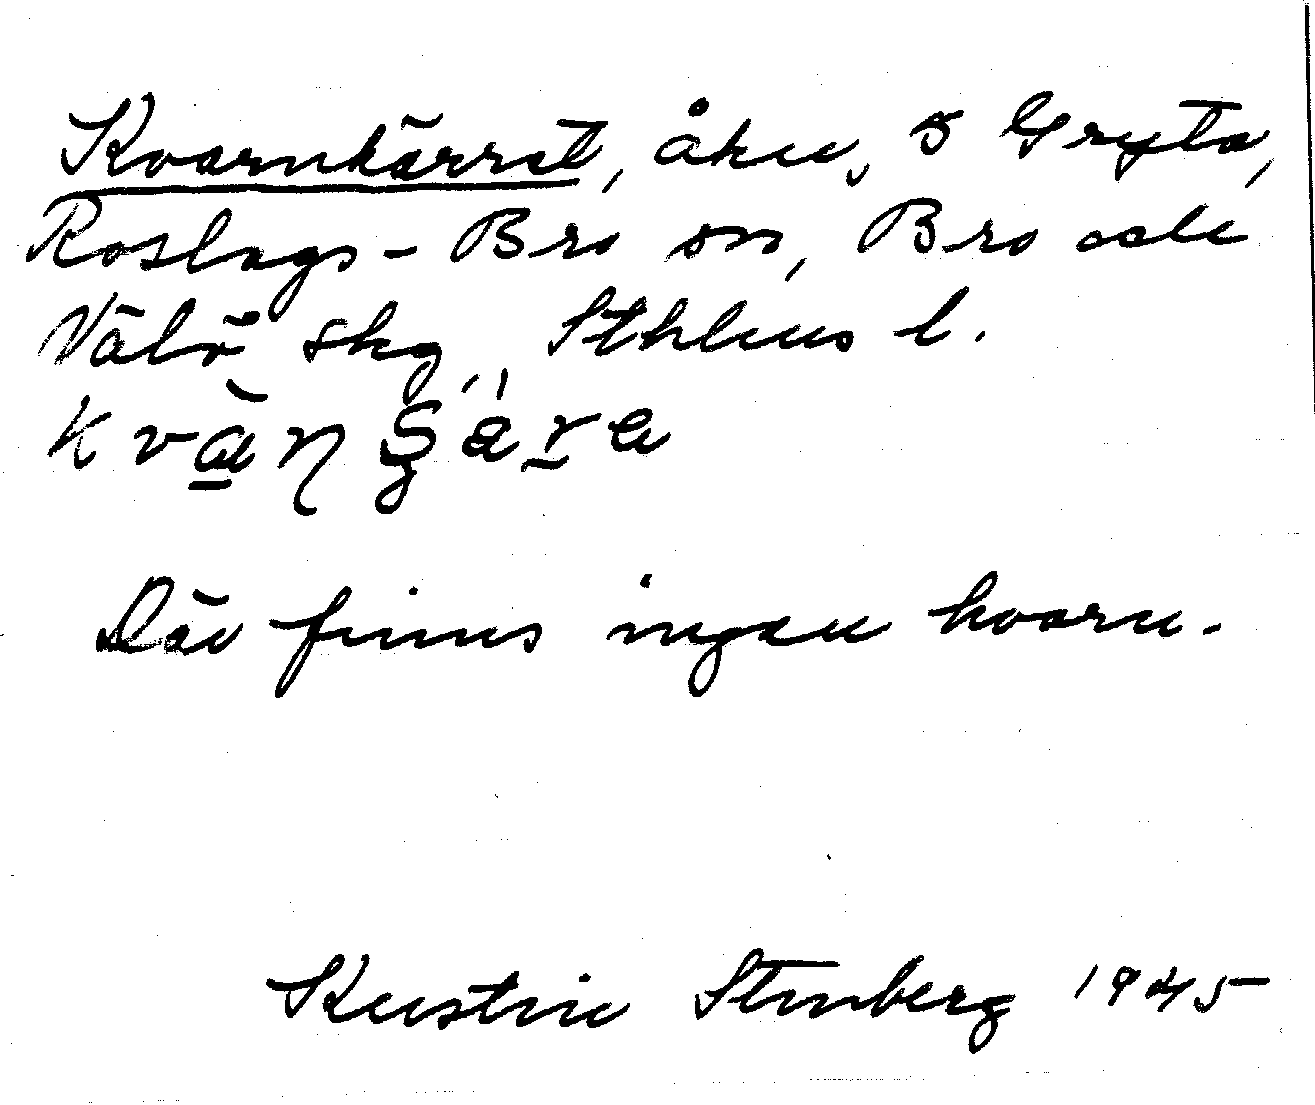 Kvarnkärret, åker, ö Gryta,
Roslags-Bro sn, Bro och
Vätö skg, Sthlms l.
Där finns ingen kvarn.
Kerstin Stenberg 1945